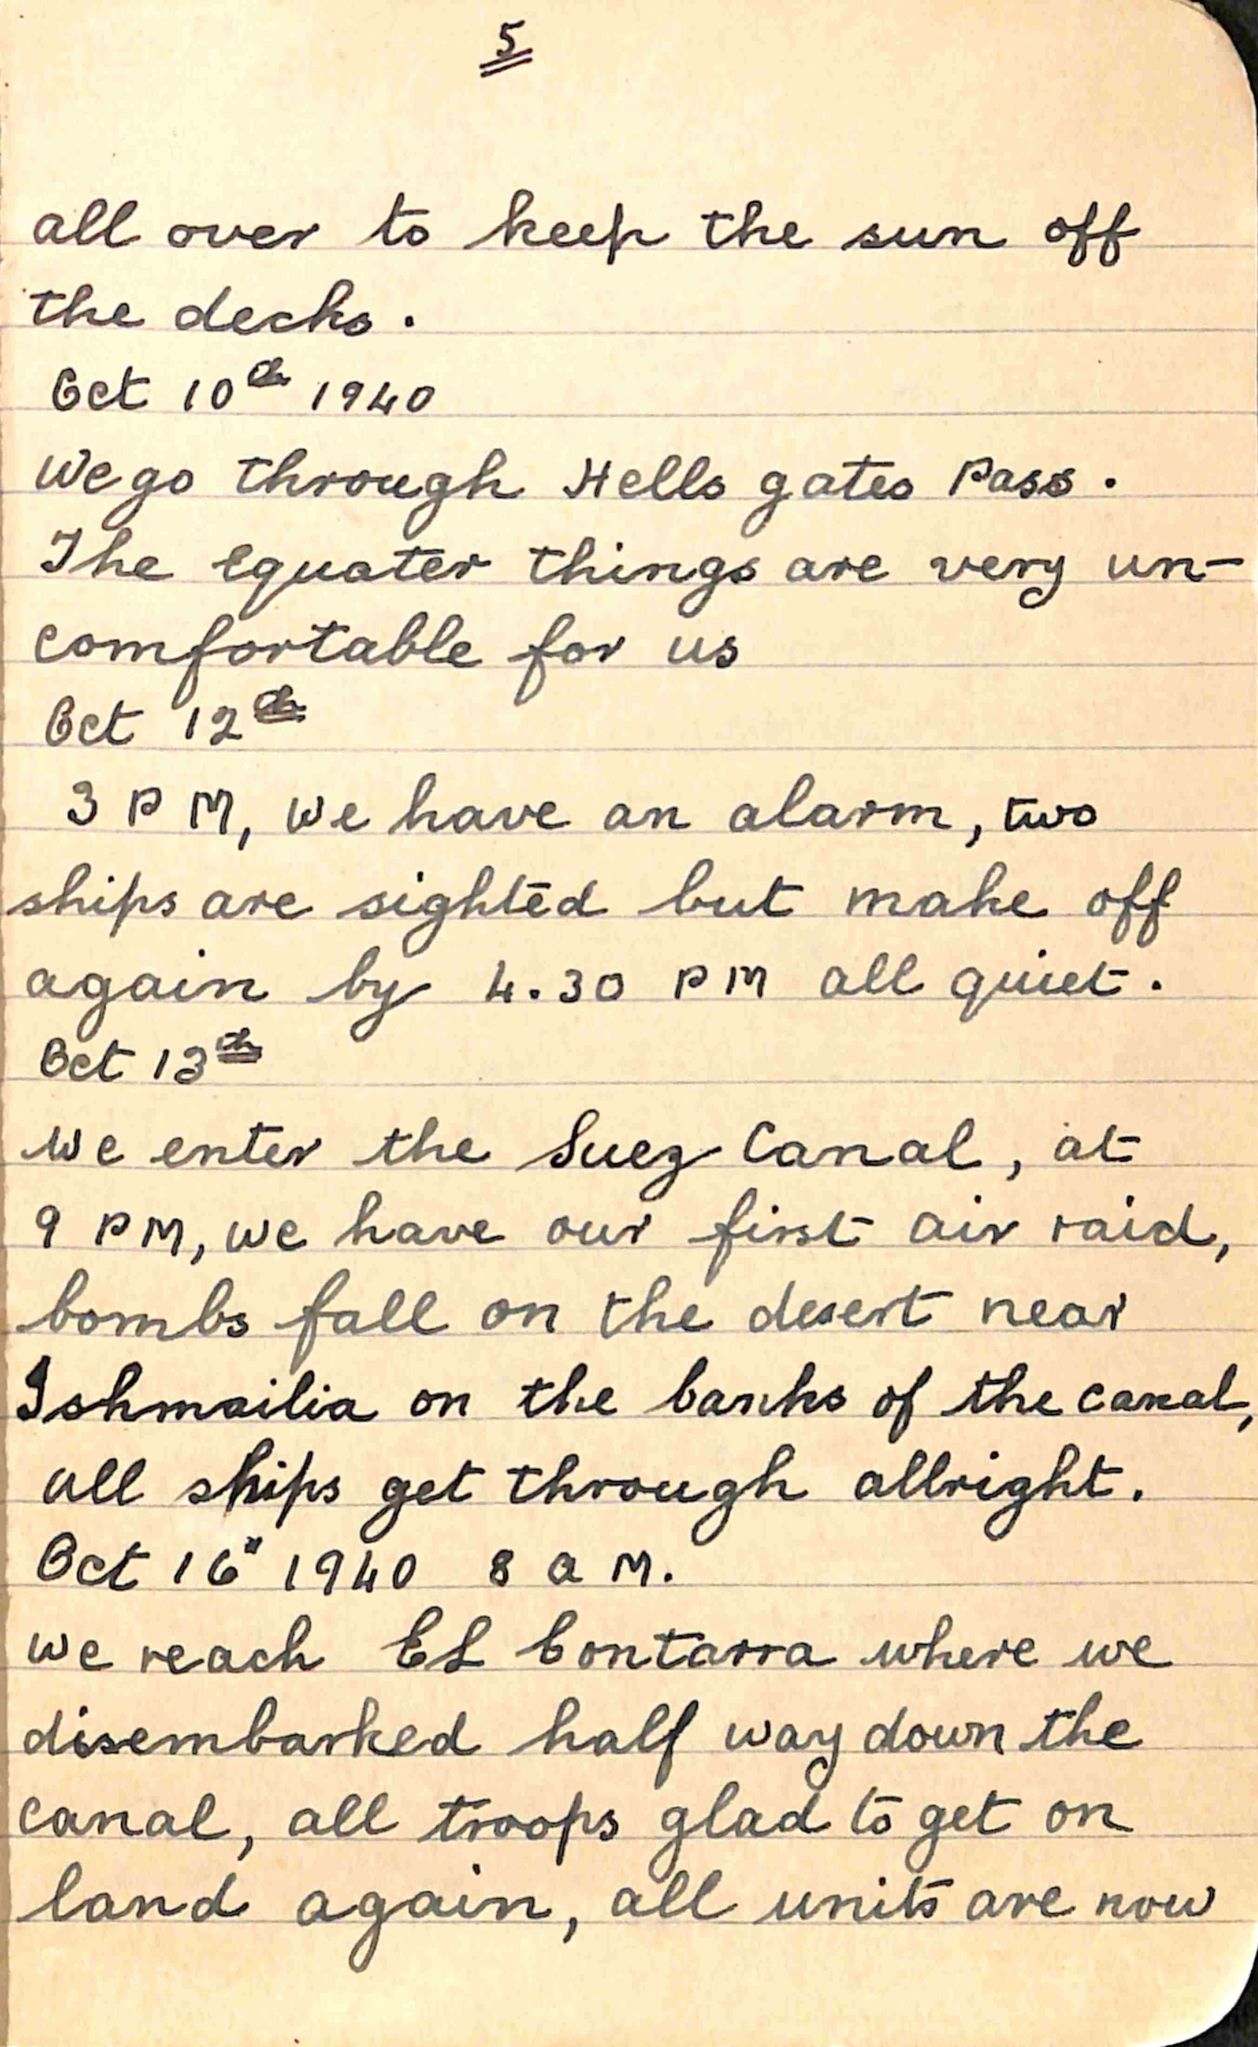 5
all over to keep the sun off
the decks.
Oct 10th 1940
We go through Hells gates Pass.
The Equater things are very un-
comfortable for us
Oct 12th
3 PM, we have an alarm, two
ships are sighted but make off
again by 4.30 PM all quiet.
Oct 13th
we enter the Suez Canal, at
9 PM, we have our first air raid,
bombs fall on the desert near
Ishmailia on the banks of the canal,
all ships get through allright.
Oct 16" 1940 8 a M.
we reach EL Contarra where we
disembarked half way down the
canal, all troops glad to get on
land again, all units are now